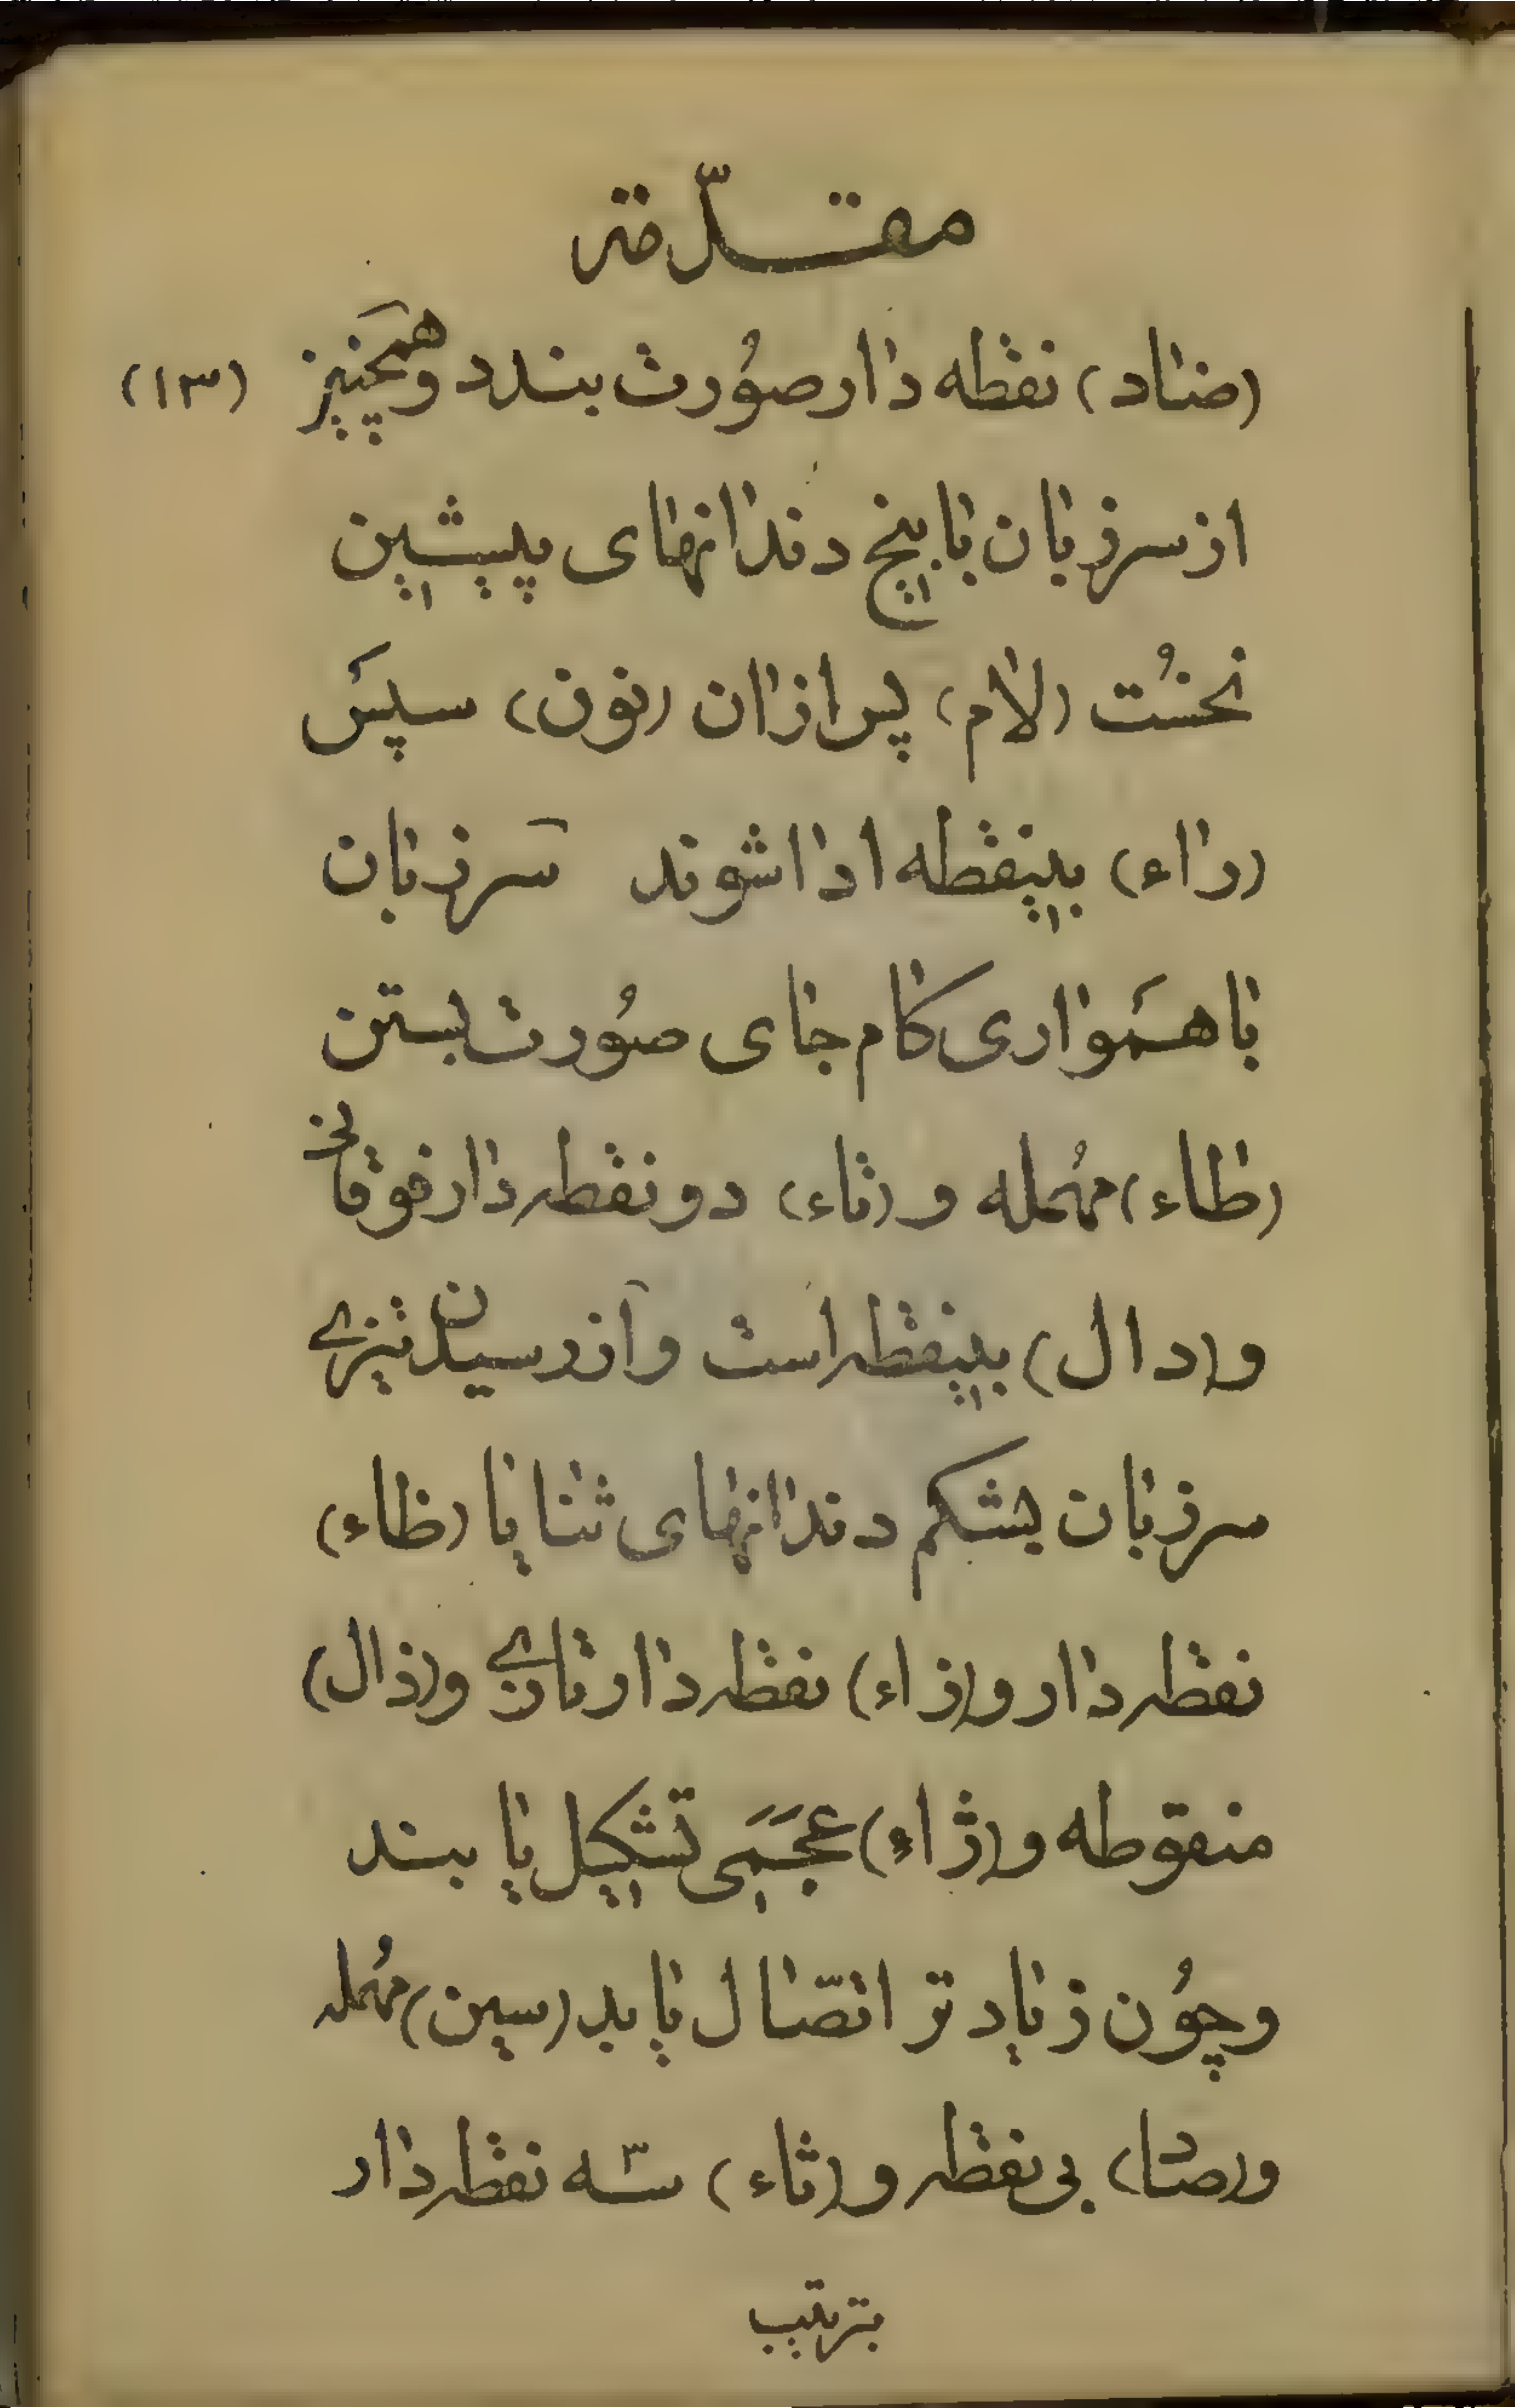 مقدّمه
(ضاد) نقطه دار صُورت بندد وهمَچنین (۱۳)
از سر زبان با بیخ دندانهای پیشین
نخسُت (لام) پس از ان (نون) سپَس
(راء) بینقطه ادا شوند سَر زبان
با همَواری کام جای صُورت بستن
(طاء) مُهمله و (تاء) دو نقطه دار فوقانی
و (دال) بینقطه است و از رسیدن تیزی
سر زبان بشکم دندانهای ثنایا (ظاء)
نقطه دار و (زاء) نقطه دار تازی و (ذال)
منقوطه و (ژاء) عجَمَی تشکیل یابند
وچُون زیادتر اتّصال یابد (سین) مُهمله
و (صاد) بی نقطه و (ثاء) سه نقطه دار
بترتیب